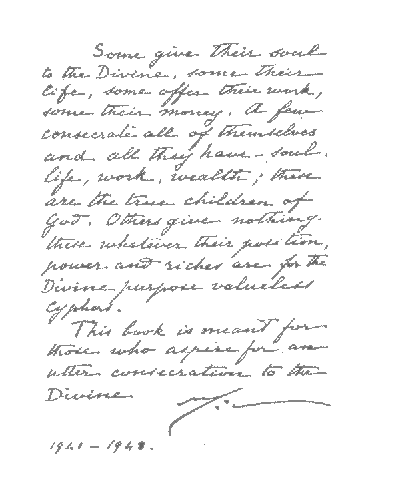 Some give their soul
to the Divine, some their
life, some offer their work,
some their money. A few
consecrate all of themselves
and all they have - soul,
life, work, wealth; these
are the true children of
God. Others give nothing.
these whatever their position,
power and riches are for the
Divine purpose valueless
cyphers.
This book is meant for
those who aspire for an
utter consecration to the
Divine
1941 - 1948.